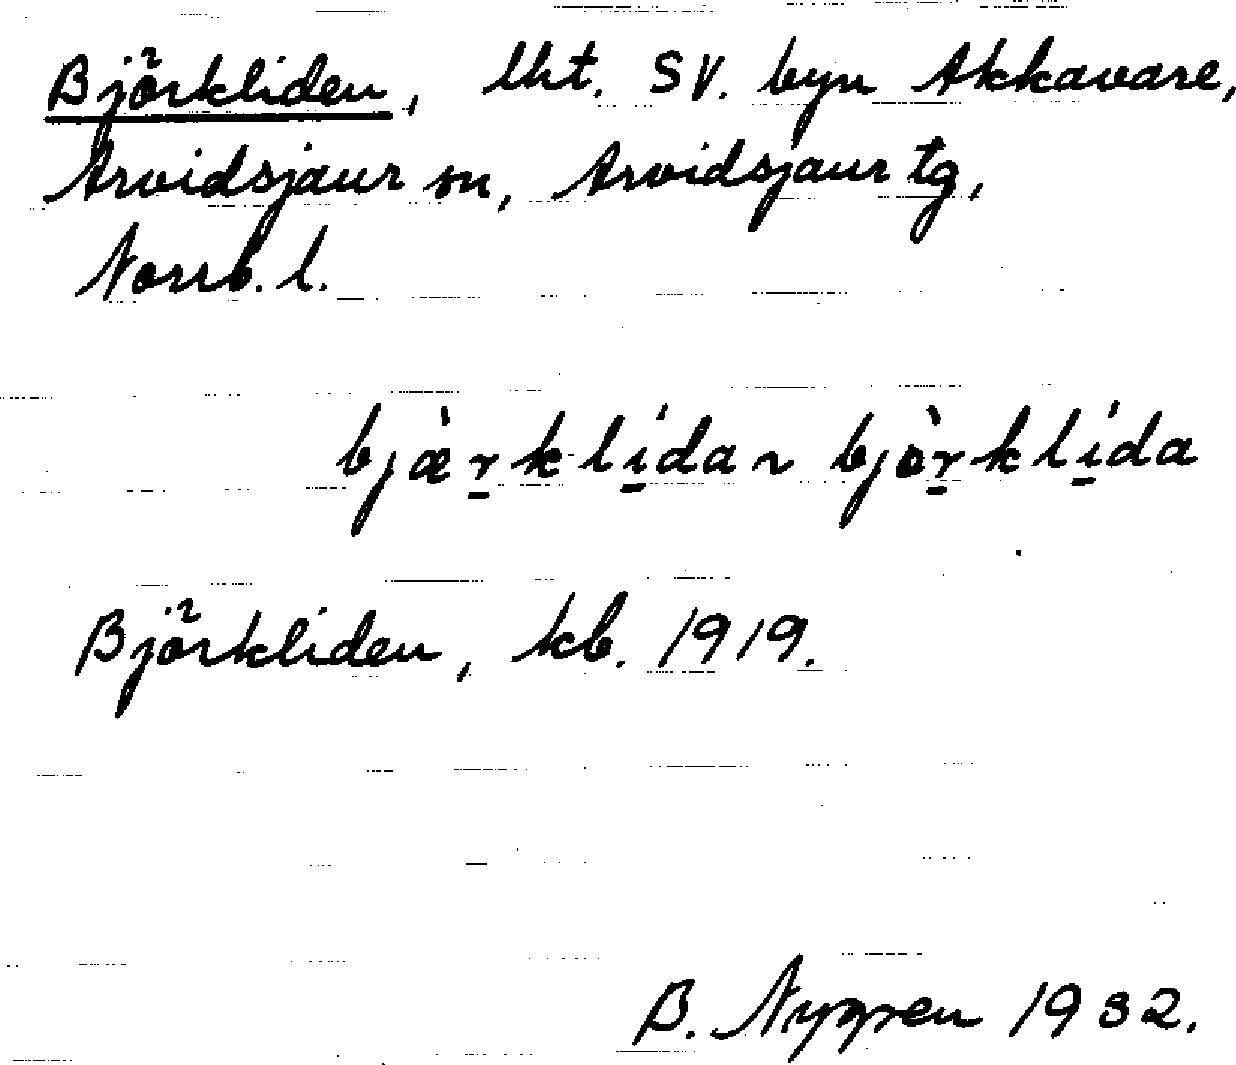 Björkliden, lht. SV. byn Akkavare,
Arvidsjaur sn, Arvidsjaur tg,
Norrb. l.
bjæ̀r̲klí̲da ~ bjòr̲klí̲da
Björkliden, kb. 1919.
B. Nygren 1932.